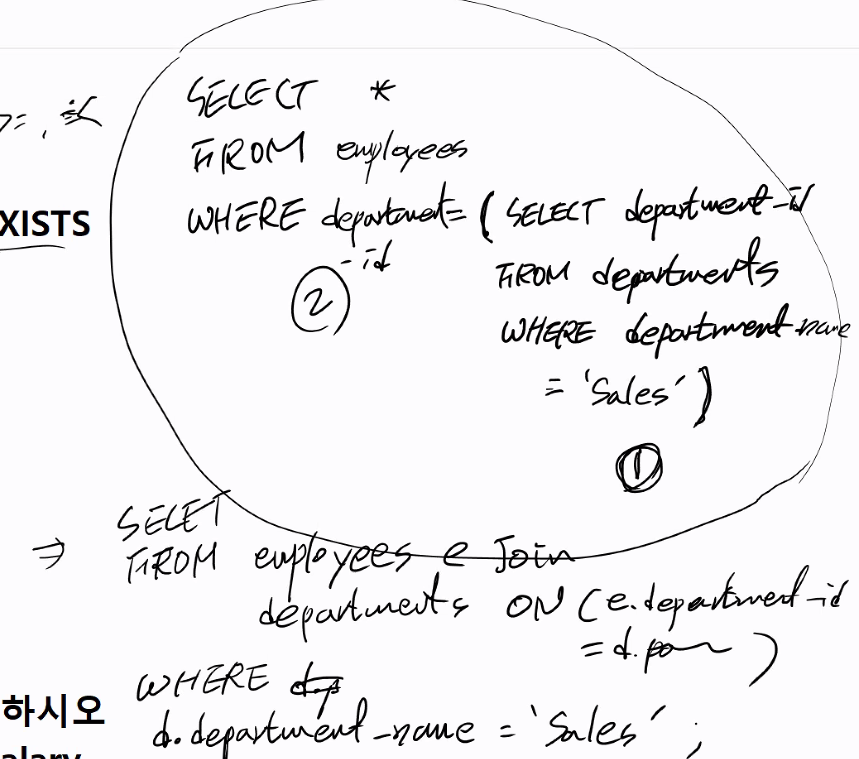 SELECT *
FROM employees
XISTS
WHERE department_id = ( SELECT department_id
FROM departments
②
WHERE department_name
= 'Sales' )
①
SELET
⇒ FROM employees e Join
departments ON ( e.department_id
= d. )
WHERE
하시오
d.department_name = 'Sales' ;
alary